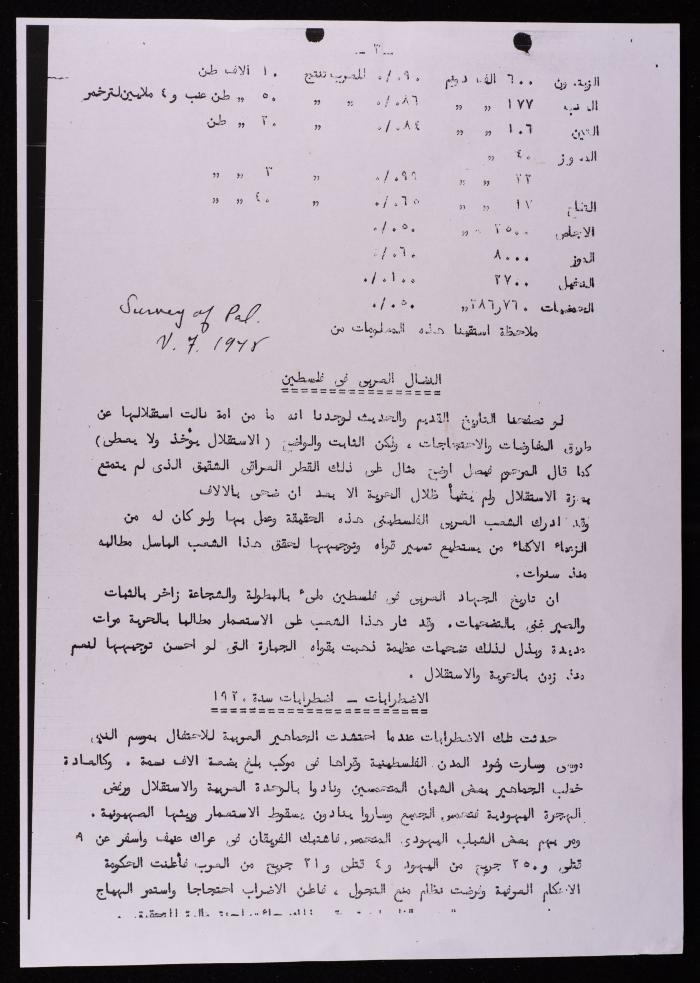 - ٣ -
الزيتون ٦٠٠ الف دونم ٠/٠ ٩٠ للعرب تنتج ١٠ الاف طن
العنب ١٧٧ " " ٠/٠ ٨٦ " " ٥٠ " طن عنب و ٤ ملايين لتر خمر
التين ١٠٦ " " ٠/٠ ٨٤ " ٢٠ " طن
٤٠ "
٢٢ " " " ٣ " "
التفاح ١٧ " " ٠/٠ ٦٥ " ٤٠ " "
الاجاص ٢٥٠٠ " ٠/٠ ٥٠
٨٠٠٠ ٠/٠ ٦٠
النخيل ٢٧٠٠ ٠/٠ ١٠٠
الحمضيات ٢٨٦,٧٦٠ " ٠/٠ ٥٠
ملاحظة استقينا هذه المعلومات من
Survey of Pal.
V. 7. 1948
النضال العربي في فلسطين
لو تصفحنا التاريخ القديم والحديث لوجدنا انه ما من امة نالت استقلالها عن
طريق المفاوضات والاحتجاجات ، ولكن الثابت والواضح ( الاستقلال يؤخذ ولا يعطى )
كما قال المرحوم فيصل اوضح مثال على ذلك القطر العراقي الشقيق الذى لم يتمتع
بعزة الاستقلال ولم يتفيأ ظلال الحرية الا بعد ان ضحى بالالاف
وقد ادرك الشعب العربي الفلسطيني هذه الحقيقة وعمل بها ولو كان له من
الزعماء الاكفاء من يستطيع تسيير قواه وتوجيهها لحقق هذا الشعب الباسل مطالبه
منذ سنوات .
ان تاريخ الجهاد العربي في فلسطين ملىء بالبطولة والشجاعة زاخر بالثبات
والصبر غني بالتضحيات . وقد ثار هذا الشعب على الاستعمار مطالبا بالحرية مرات
عديدة وبذل لذلك تضحيات عظيمة ذهبت بقواه الجبارة التي لو احسن توجيهها لنعم
منذ زمن بالحرية والاستقلال .
الاضطرابات - اضطرابات سنة ١٩٢٠
حدثت تلك الاضطرابات عندما احتشدت الجماهير العربية للاحتفال بموسم النبي
موسى وسارت وفود المدن الفلسطينية وقراها في موكب بلغ بضعة الاف نسمة . وكالعادة
خطب الجماهير بعض الشبان المتحمسين ونادوا بالوحدة العربية والاستقلال ورفض
الهجرة اليهودية فتحمس الجميع وساروا ينادون بسقوط الاستعمار وربيبتها الصهيونية .
ومر بهم بعض الشباب اليهودى المتحمس فاشتبك الفريقان في عراك عنيف واسفر عن ٩
قتلى و ٢٥٠ جريح من اليهود و ٤ قتلى و ٢١ جريح من العرب فأعلنت الحكومة
الاحكام العرفية وفرضت نظام منع التجول ، فاعلن الاضراب احتجاجا واستمر الهياج